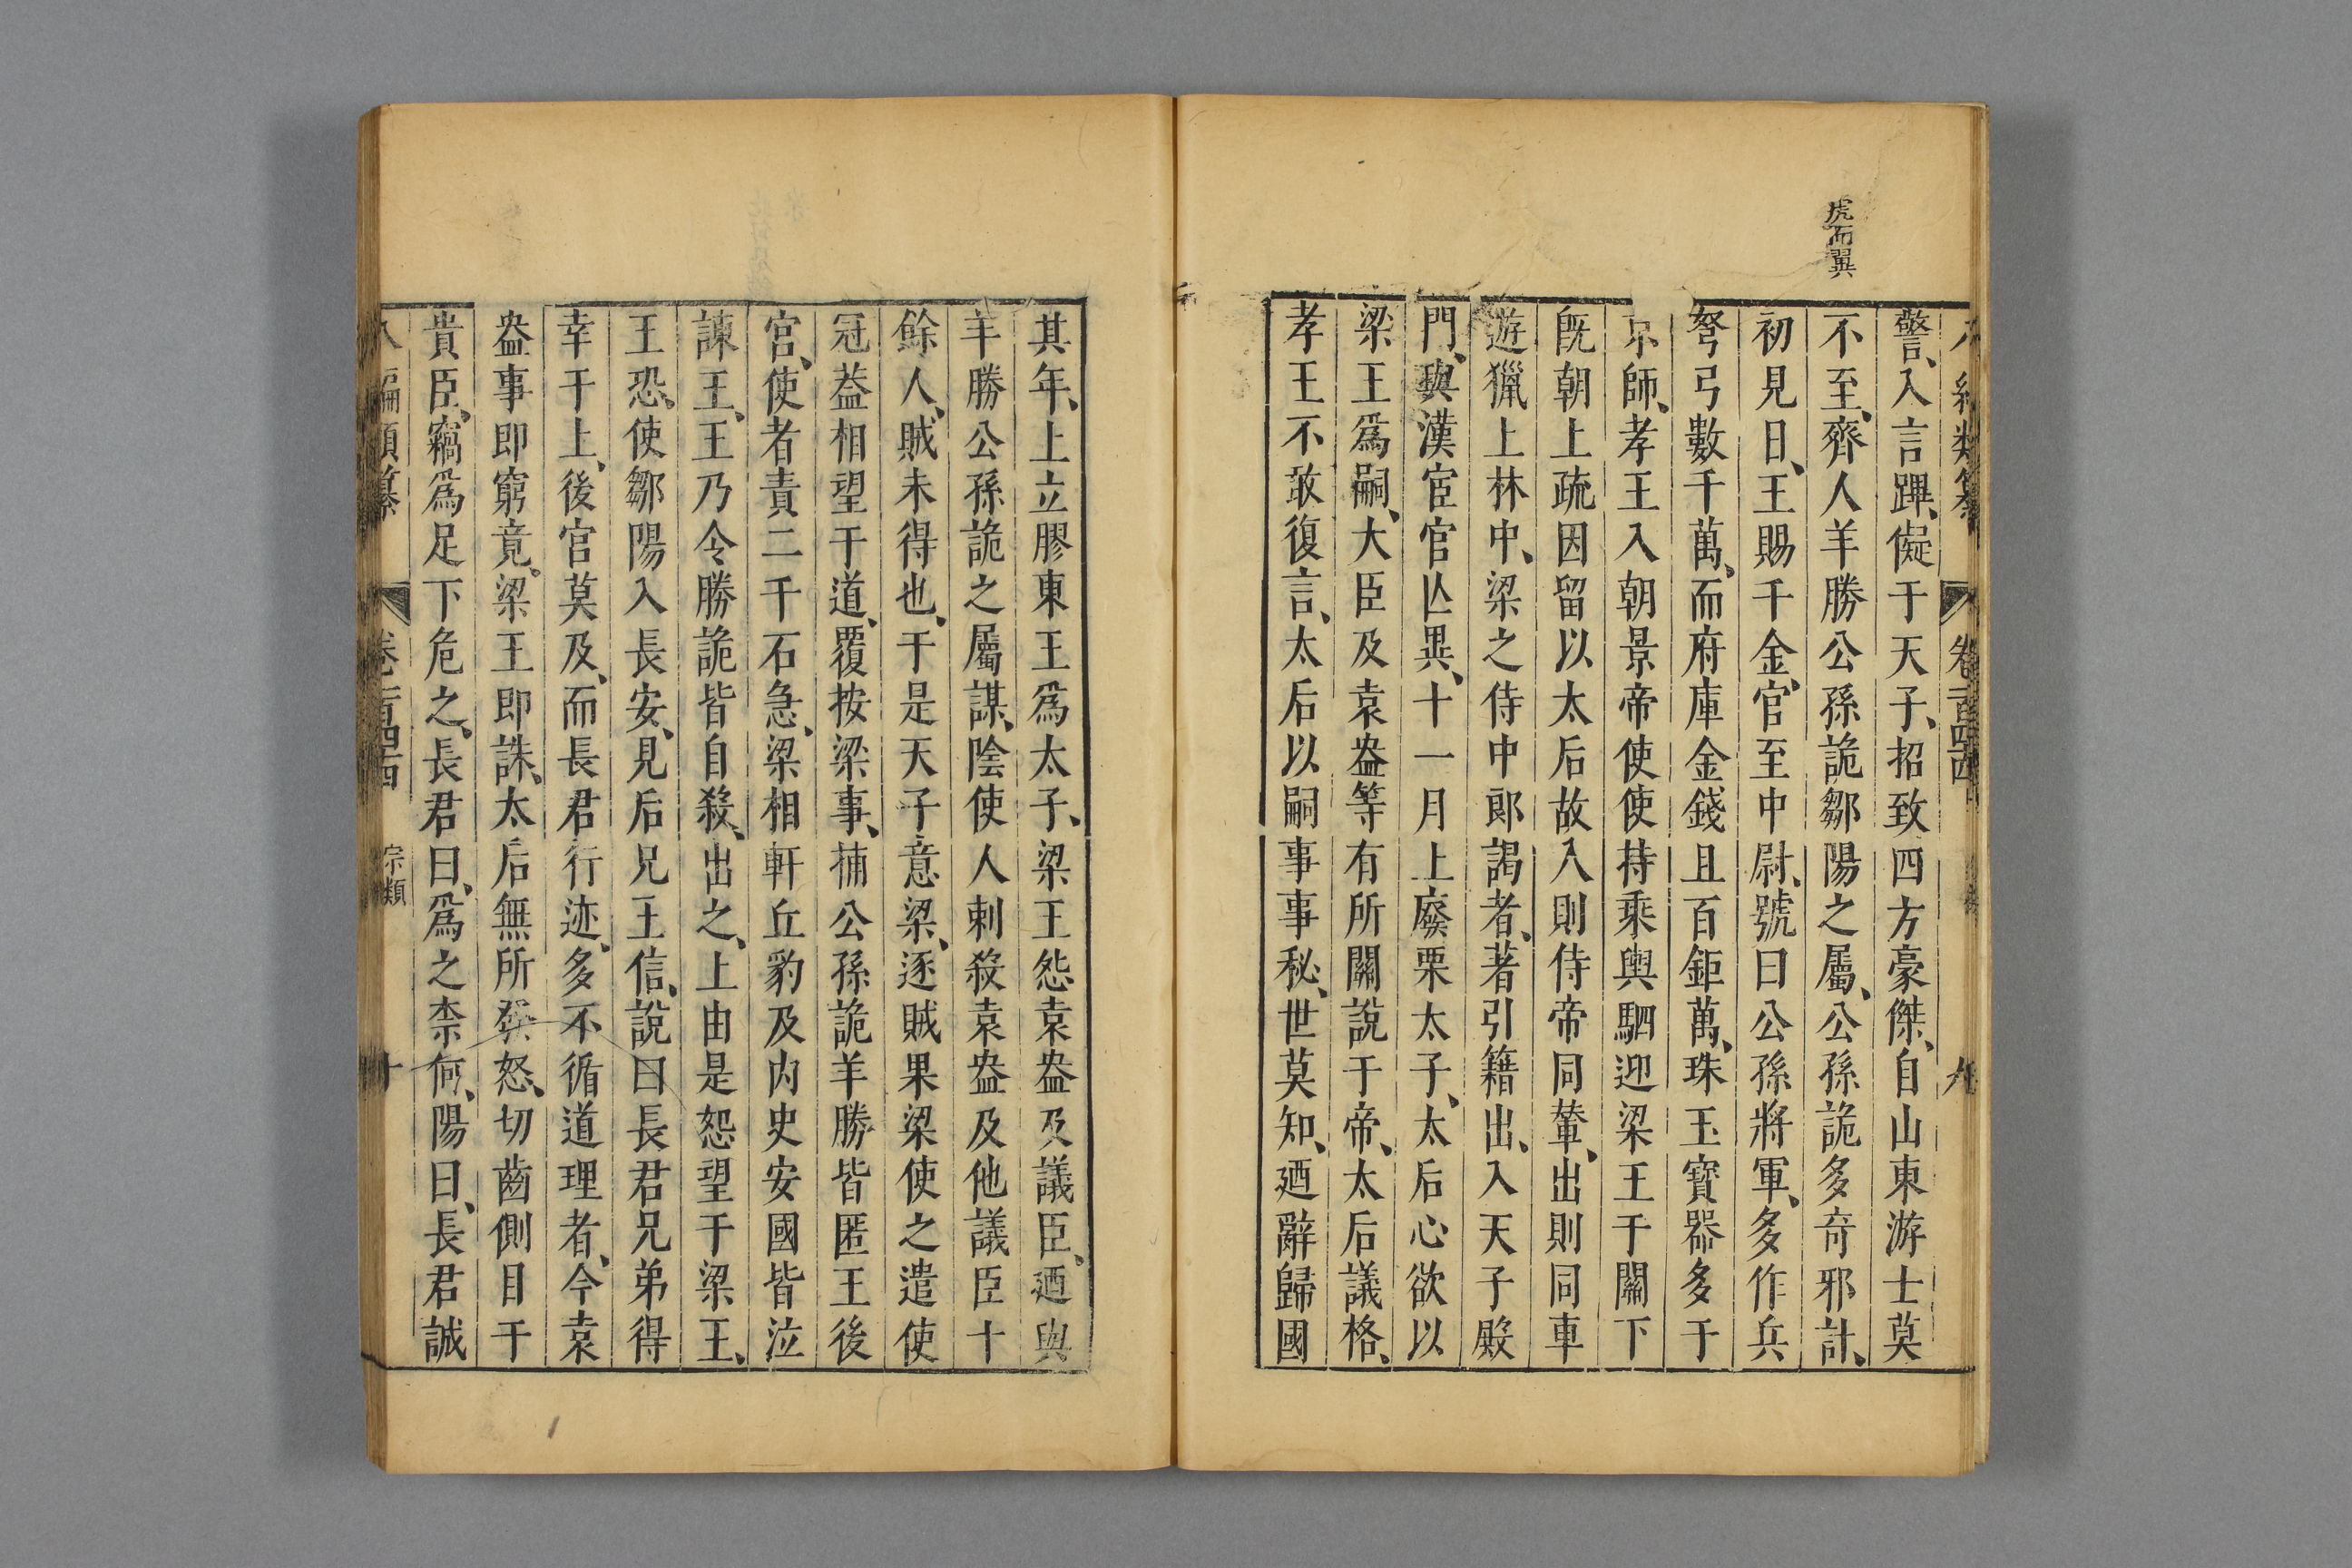 虎而翼
警、入言蹕、儗于天子、招致四方豪傑、自山東游士莫
不至、齊人羊勝公孫詭鄒陽之屬、公孫詭多奇邪計、
初見日、王賜千金、官至中尉、號曰公孫將軍、多作兵
弩弓數千萬、而府庫金錢且百鉅萬、珠玉寶器多于
京師、孝王入朝景帝使使持乘輿駟迎梁王于關下
旣朝上疏因留以太后故入則侍帝同輦、出則同車
遊獵上林中、梁之侍中郎謁者、著引籍出、入天子殿
門、與漢宦官亾異、十一月上廢栗太子、太后心欲以
梁王爲嗣、大臣及袁盎等有所關說于帝、太后議格、
孝王不敢復言、太后以嗣事事秘、世莫知、廼辭歸國
卷一百四十四
九
其年、上立膠東王爲太子、梁王怨袁盎及議臣、廼與
羊勝公孫詭之屬謀、陰使人刺殺袁盎及他議臣十
餘人、賊未得也、于是天子意梁、逐賊果梁使之遣使
冠葢相望于道、覆按梁事、捕公孫詭羊勝皆匿王後
宮、使者責二千石急、梁相軒丘豹及內史安國皆泣
諫王、王乃令勝詭皆自殺、出之、上由是怨望于梁王、
王恐、使鄒陽入長安、見后兄王信、說曰長君兄弟得
幸于上、後宮莫及、而長君行迹、多不循道理者、今袁
盎事即窮竟、梁王即誅、太后無所發怒、切齒側目于
貴臣、竊爲足下危之、長君曰、爲之柰何、陽曰、長君誠
八編類纂
卷一百四十四
宗類
十